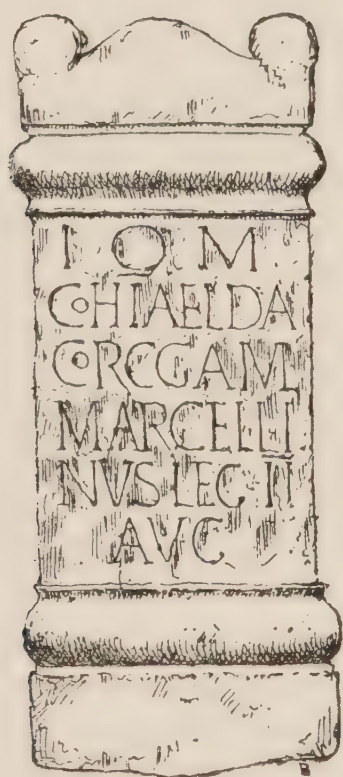 I O M
COHIAELDA
CORCGAM
MARCELLI
NVS LEC · II
AVC